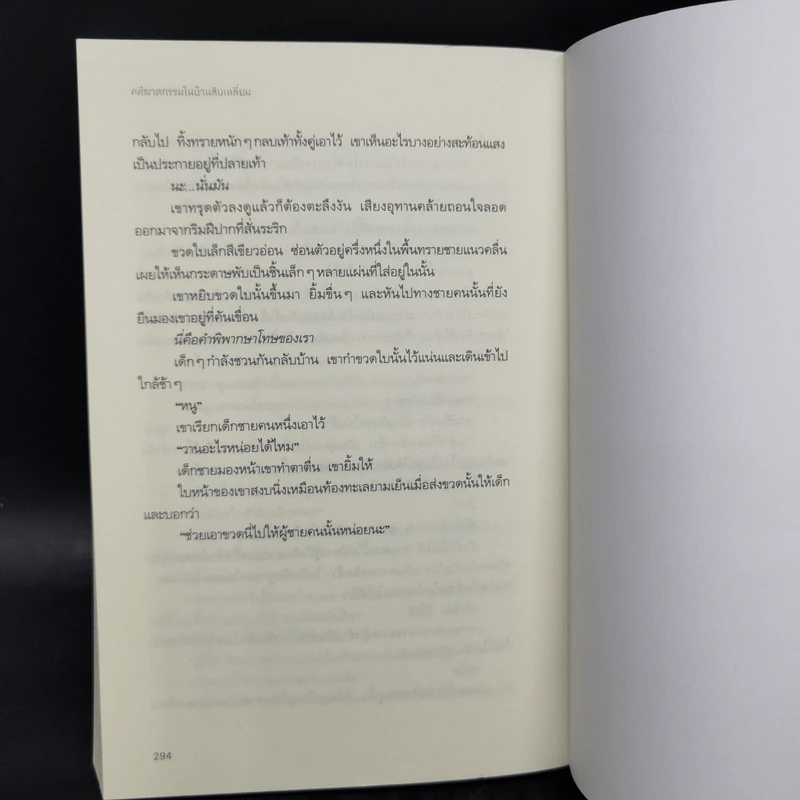 คดีฆาตกรรมในบ้านสิบเหลี่ยม
กลับไป ทิ้งทรายหนัก ๆ กลบเท้าทั้งคู่เอาไว้ เขาเห็นอะไรบางอย่างสะท้อนแสง
เป็นประกายอยู่ที่ปลายเท้า
นะ...นั่นมัน
เขาทรุดตัวลงดูแล้วก็ต้องตะลึงงัน เสียงอุทานคล้ายถอนใจลอด
ออกมาจากริมฝีปากที่สั่นระริก
ขวดใบเล็กสีเขียวอ่อน ซ่อนตัวอยู่ครึ่งหนึ่งในพื้นทรายชายแนวคลื่น
เผยให้เห็นกระดาษพับเป็นชิ้นเล็ก ๆ หลายแผ่นที่ใส่อยู่ในนั้น
เขาหยิบขวดใบนั้นขึ้นมา ยิ้มขื่น ๆ และหันไปทางชายคนนั้นที่ยัง
ยืนมองเขาอยู่ที่คันเขื่อน
นี่คือคำพิพากษาโทษของเรา
เด็ก ๆ กำลังชวนกันกลับบ้าน เขากำขวดใบนั้นไว้แน่นและเดินเข้าไป
ใกล้ช้า ๆ
“หนู”
เขาเรียกเด็กชายคนหนึ่งเอาไว้
“วานอะไรหน่อยได้ไหม”
เด็กชายมองหน้าเขาทำตาตื่น เขายิ้มให้
ใบหน้าของเขาสงบนิ่งเหมือนท้องทะเลยามเย็นเมื่อส่งขวดนั้นให้เด็ก
และบอกว่า
“ช่วยเอาขวดนี่ไปให้ผู้ชายคนนั้นหน่อยนะ”
294